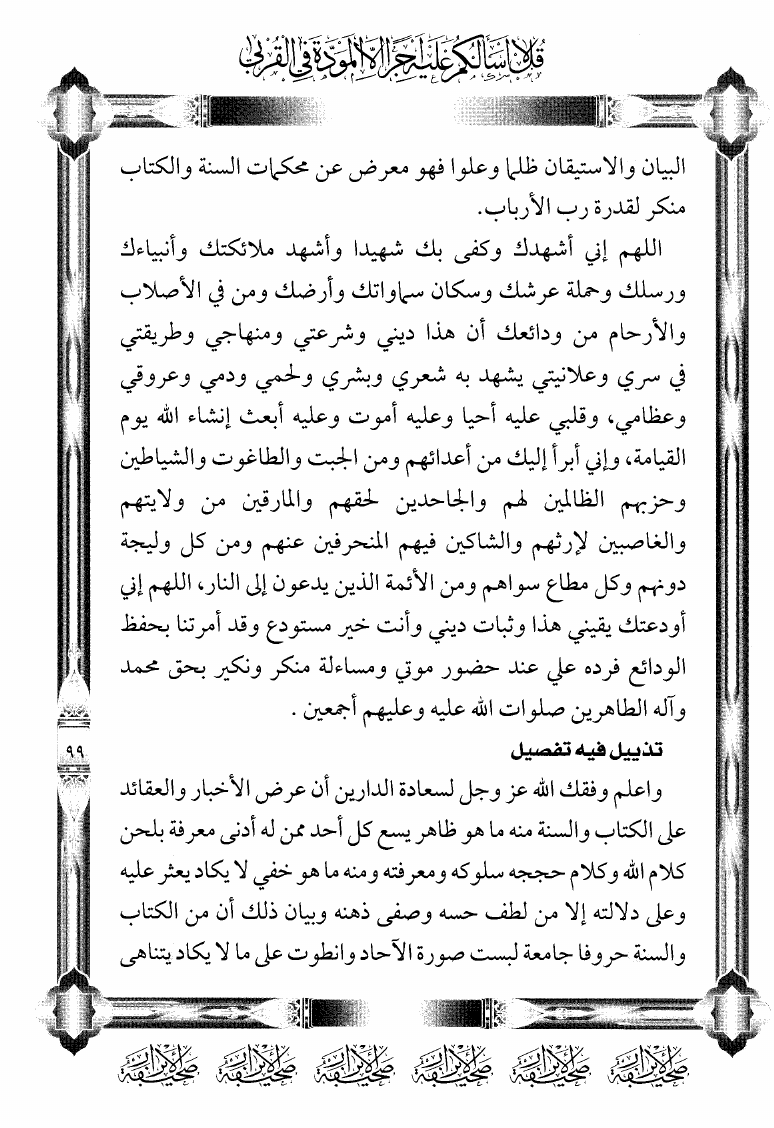 قل لا أسألكم عليه أجرا إلا المودة في القربى
البيان والاستيقان ظلما وعلوا فهو معرض عن محكمات السنة والكتاب
منكر لقدرة رب الأرباب.
اللهم إني أشهدك وكفى بك شهيدا وأشهد ملائكتك وأنبياءك
ورسلك وحملة عرشك وسكان سماواتك وأرضك ومن في الأصلاب
والأرحام من ودائعك أن هذا ديني وشرعتي ومنهاجي وطريقتي
في سري وعلانيتي يشهد به شعري وبشري ولحمي ودمي وعروقي
وعظامي، وقلبي عليه أحيا وعليه أموت وعليه أبعث إنشاء الله يوم
القيامة، وإني أبرأ إليك من أعدائهم ومن الجبت والطاغوت والشياطين
وحزبهم الظالمين لهم والجاحدين لحقهم والمارقين من ولايتهم
والغاصبين لإرثهم والشاكين فيهم المنحرفين عنهم ومن كل وليجة
دونهم وكل مطاع سواهم ومن الأئمة الذين يدعون إلى النار، اللهم إني
أودعتك يقيني هذا وثبات ديني وأنت خير مستودع وقد أمرتنا بحفظ
الودائع فرده علي عند حضور موتي ومساءلة منكر ونكير بحق محمد
وآله الطاهرين صلوات الله عليه وعليهم أجمعين .
تذييل فيه تفصيل
٩٩
واعلم وفقك الله عز وجل لسعادة الدارين أن عرض الأخبار والعقائد
على الكتاب والسنة منه ما هو ظاهر يسع كل أحد ممن له أدنى معرفة بلحن
كلام الله وكلام حججه سلوكه ومعرفته ومنه ما هو خفي لا يكاد يعثر عليه
وعلى دلالته إلا من لطف حسه وصفى ذهنه وبيان ذلك أن من الكتاب
والسنة حروفا جامعة لبست صورة الآحاد وانطوت على ما لا يكاد يتناهى